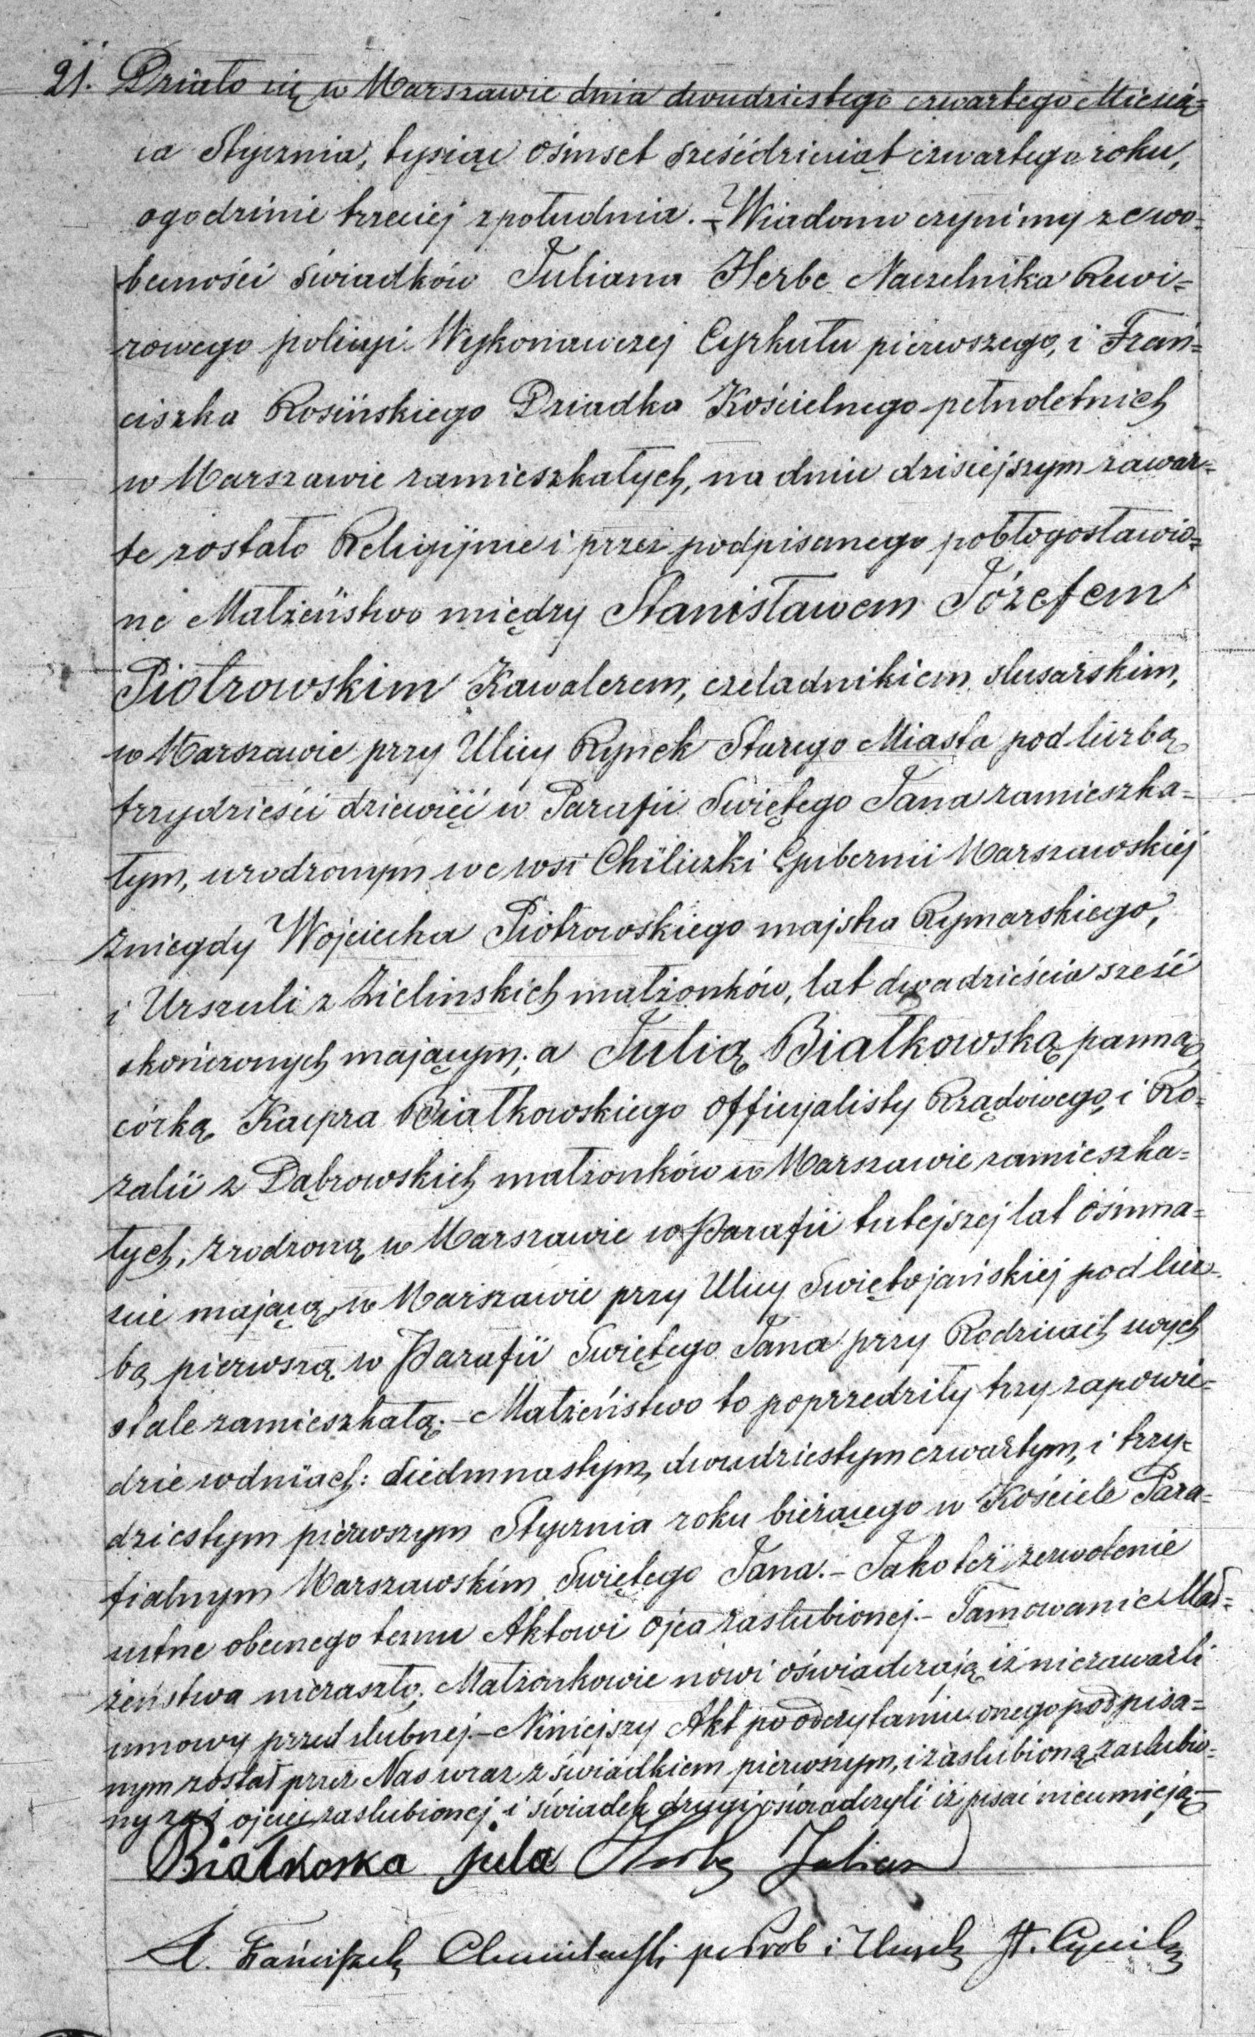 21. Działo się w Warszawie dnia dwudziestego czwartego Miesią=
ca Stycznia, tysiąc ośmset sześćdziesiąt czwartego roku,
o godzinie trzeciej z południa. – Wiadomo czynimy że w o=
becności świadków Juliana Herbe Naczelnika Rewi=
rowego policyi Wykonawczej Cyrkułu pierwszego, i Fran=
ciszka Rosińskiego Dziadka Kościelnego pełnoletnich
w Warszawie zamieszkałych, na dniu dzisiejszym zawar=
te zostało Religijnie i przez podpisanego pobłogosławio=
ne Małżeństwo między Stanisławem Józefem
Piotrowskim Kawalerem, czeladnikiem slusarskim,
w Warszawie przy Ulicy Rynek Starego Miasta pod liczbą
trzydzieści dziewięć w Parafii Świętego Jana zamieszka=
łym, urodzonym we wsi Chiliczki Gubernii Warszawskiej
z niegdy Wojciecha Piotrowskiego majstra Rymarskiego,
i Urszuli z Zielinskich małżonków, lat dwadzieścia sześć
skończonych mającym; a Julią Białkowską panną
córką Kacpra Białkowskiego Officyjalisty Rządowego, i Ro=
zalii z Dąbrowskich małżonków w Warszawie zamieszka=
łych, zrodzoną w Warszawie w Parafii tutejszej lat ośmna=
ście mającą, w Warszawie przy Ulicy Świętojańskiej pod licz=
bą pierwszą w Parafii Świętego Jana przy Rodzicach swych
stale zamieszkałą. – Małżeństwo to poprzedziły trzy zapowie=
dzie w dniach: siedmnastym, dwudziestym czwartym, i trzy=
dziestym pierwszym Stycznia roku bieżącego w Kościele Para=
fialnym Warszawskim Świętego Jana. – Jako też zezwolenie
ustne obecnego temu Aktowi ojca zaslubionej. – Tamowanie Mał=
żeństwa nie zaszło, Małżonkowie nowi oświadczają iż nie zawarli
umowy przedslubnej. – Niniejszy Akt po odczytaniu onego podpisa=
nym został przez Nas wraz z świadkiem pierwszym, i zaslubioną, zaslubio=
ny zaś ojciec zaslubionej i świadek drugi oświadczyli iż pisać nieumieją –
Białkoska jula Herbe Julian
X. Franciszek